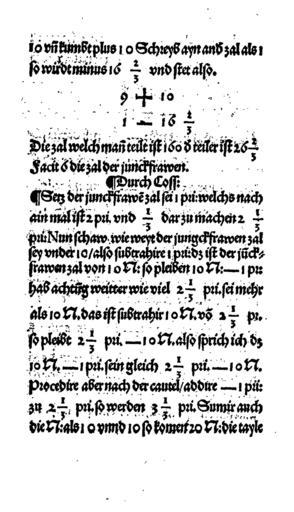 10 vñ kumbt plus 10 Schreyb ayn and zal als 1
so wirdt minus 16 2/3 vnd stet also.
9 + 10
1 — 16 2/3
Die zal welch mañ teilt ist 160 d teiler ist 26 2/3
Facit 6 die zal der junckfrawen.
¶Durch Coss:
¶Setz der junckfrawē zal sei 1 pri: welchs nach
ain mal ist 2 pri. vnd 1/3 dar zu machen 2 1/3
pri: Nun schaw wie weyt der jungckfrawen zal
sey vnder 10/ also subtrahire 1 pri: dz ist der jūck-
frawen zal von 10 N: so pleiben 10 N: — 1 pri:
hab achtūg weitter wie viel 2 1/3 pri. sei mehr
als 10 N. das ist subtrahir 10 N. vō 2 1/3 pri.
so pleibt 2 1/3 pri. — 10 N. also sprich ich dz
10 N. — 1 pri. sein gleich 2 1/3 pri. — 10 N.
Procedire aber nach der cautel/ addire — 1 pri:
zu 2 1/3 pri. so werden 3 1/3 pri. Sumir auch
die N: als 10 vnnd 10 so komen 20 N: die tayle